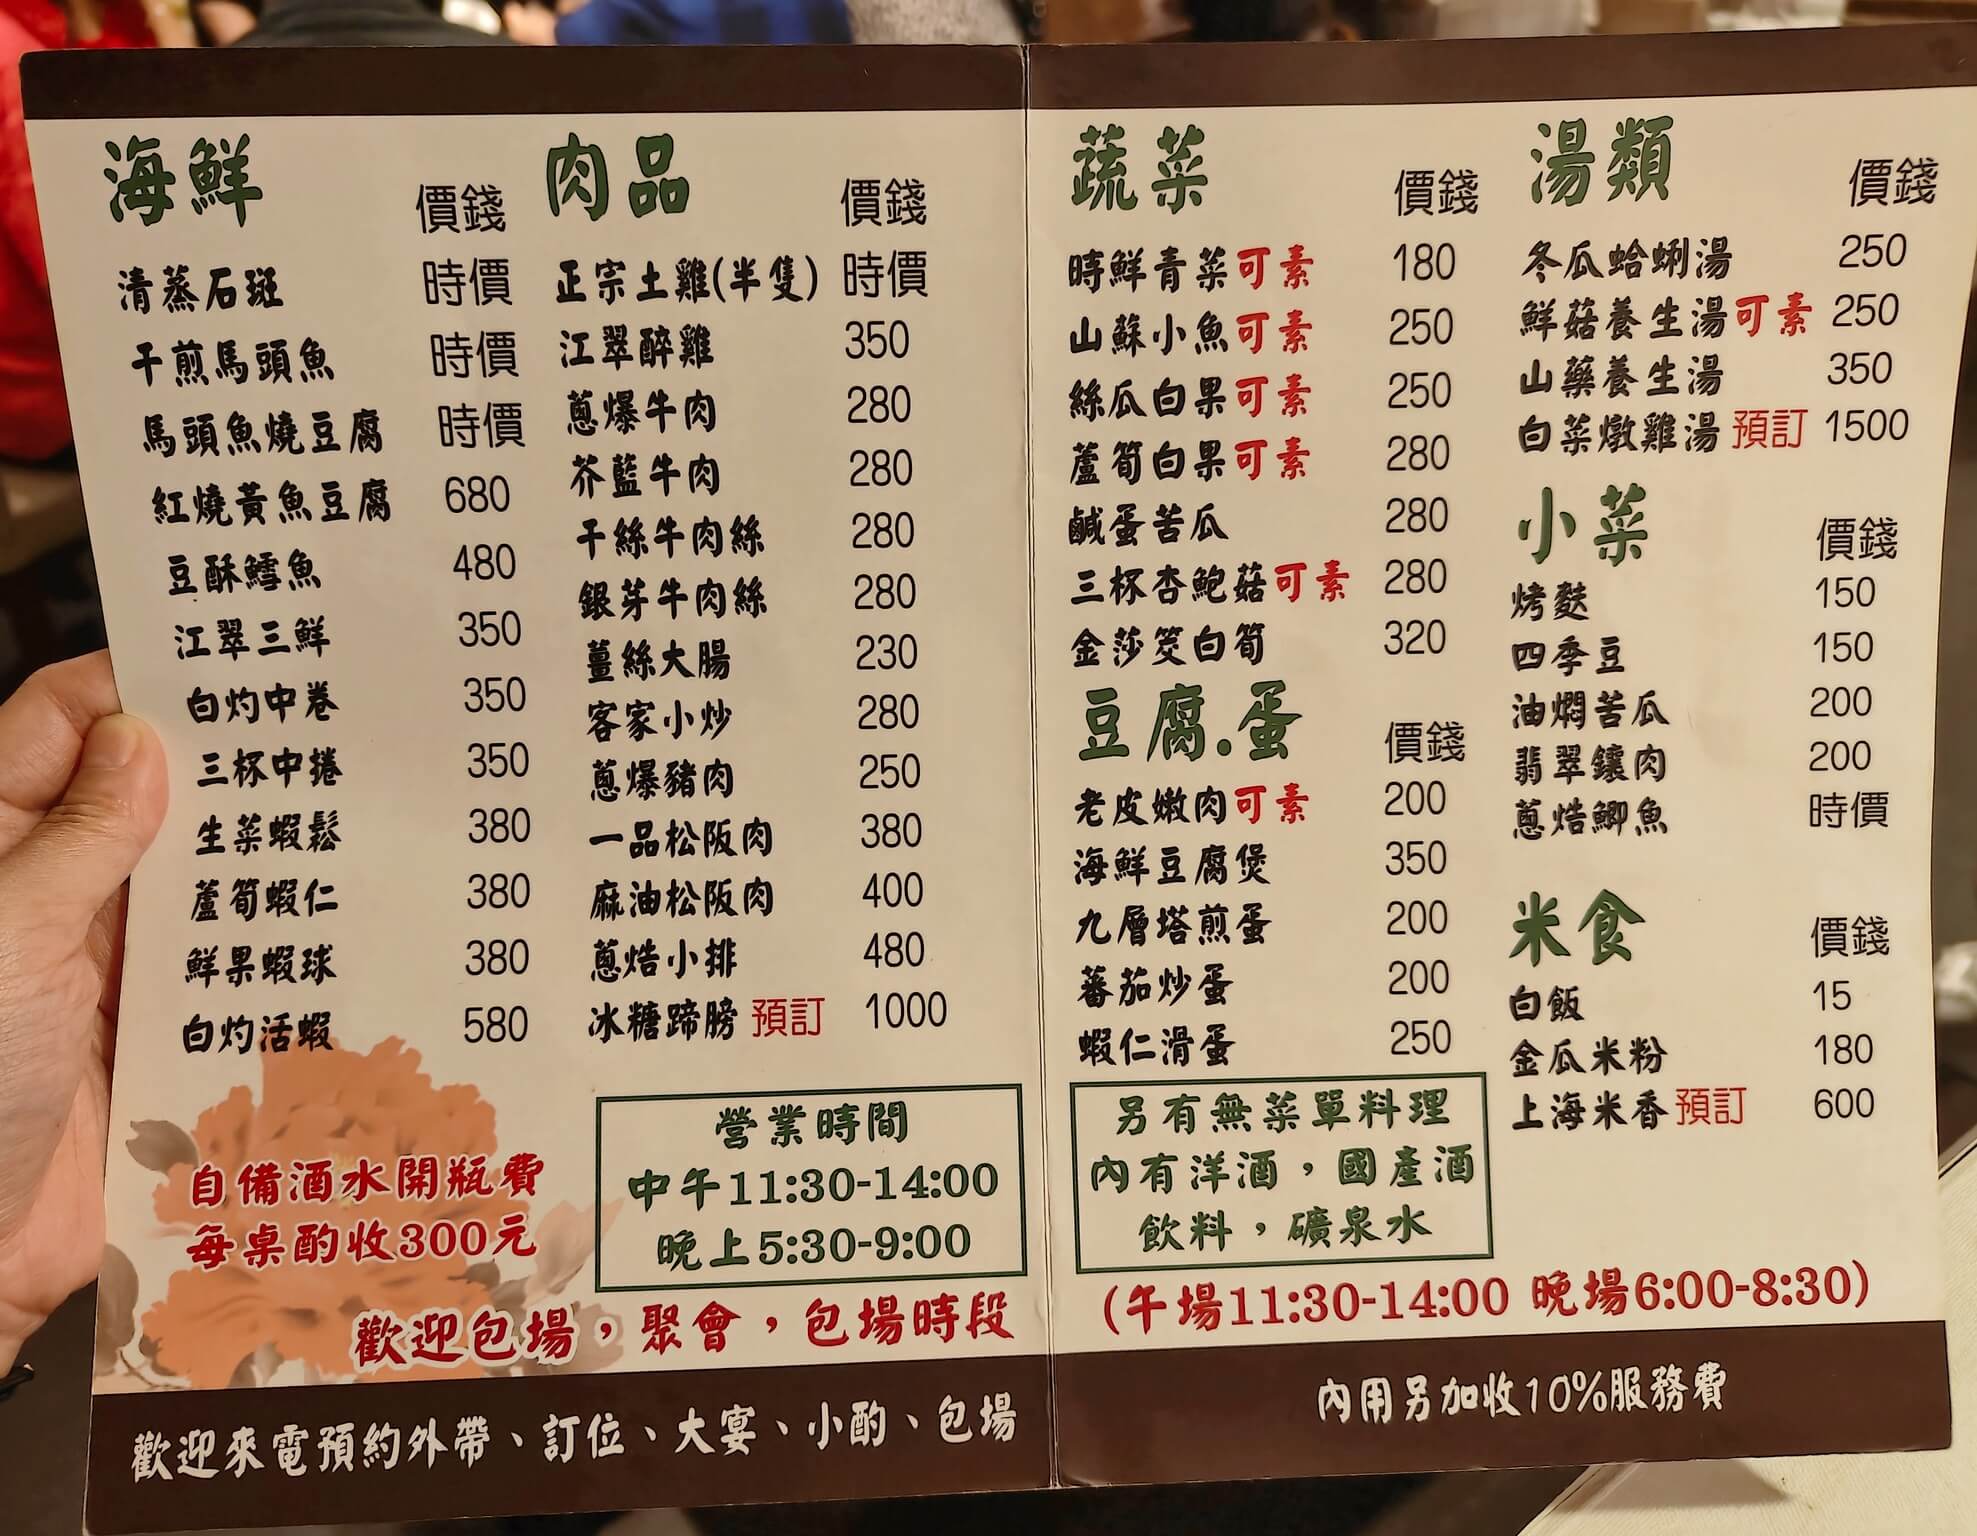 海鮮 價錢
清蒸石斑 時價
干煎馬頭魚 時價
馬頭魚燒豆腐 時價
紅燒黃魚豆腐 680
豆酥鱈魚 480
江翠三鮮 350
白灼中卷 350
三杯中捲 350
生菜蝦鬆 380
蘆筍蝦仁 380
鮮果蝦球 380
白灼活蝦 580
肉品 價錢
正宗土雞(半隻) 時價
江翠醉雞 350
蔥爆牛肉 280
芥藍牛肉 280
干絲牛肉絲 280
銀芽牛肉絲 280
薑絲大腸 230
客家小炒 280
蔥爆豬肉 250
一品松阪肉 380
麻油松阪肉 400
蔥焅小排 480
冰糖蹄膀 預訂 1000
自備酒水開瓶費
每桌酌收300元
營業時間
中午11:30-14:00
晚上5:30-9:00
歡迎包場，聚會，包場時段
歡迎來電預約外帶、訂位、大宴、小酌、包場
蔬菜 價錢
時鮮青菜可素 180
山蘇小魚可素 250
絲瓜白果可素 250
蘆筍白果可素 280
鹹蛋苦瓜 280
三杯杏鮑菇可素 280
金莎筊白筍 320
豆腐.蛋 價錢
老皮嫩肉可素 200
海鮮豆腐煲 350
九層塔煎蛋 200
蕃茄炒蛋 200
蝦仁滑蛋 250
另有無菜單料理
內有洋酒，國產酒
飲料，礦泉水
湯類 價錢
冬瓜蛤蜊湯 250
鮮菇養生湯可素 250
山藥養生湯 350
白菜燉雞湯 預訂 1500
小菜 價錢
烤麩 150
四季豆 150
油燜苦瓜 200
翡翠鑲肉 200
蔥焅鯽魚 時價
米食 價錢
白飯 15
金瓜米粉 180
上海米香 預訂 600
(午場11:30-14:00 晚場6:00-8:30)
內用另加收10%服務費